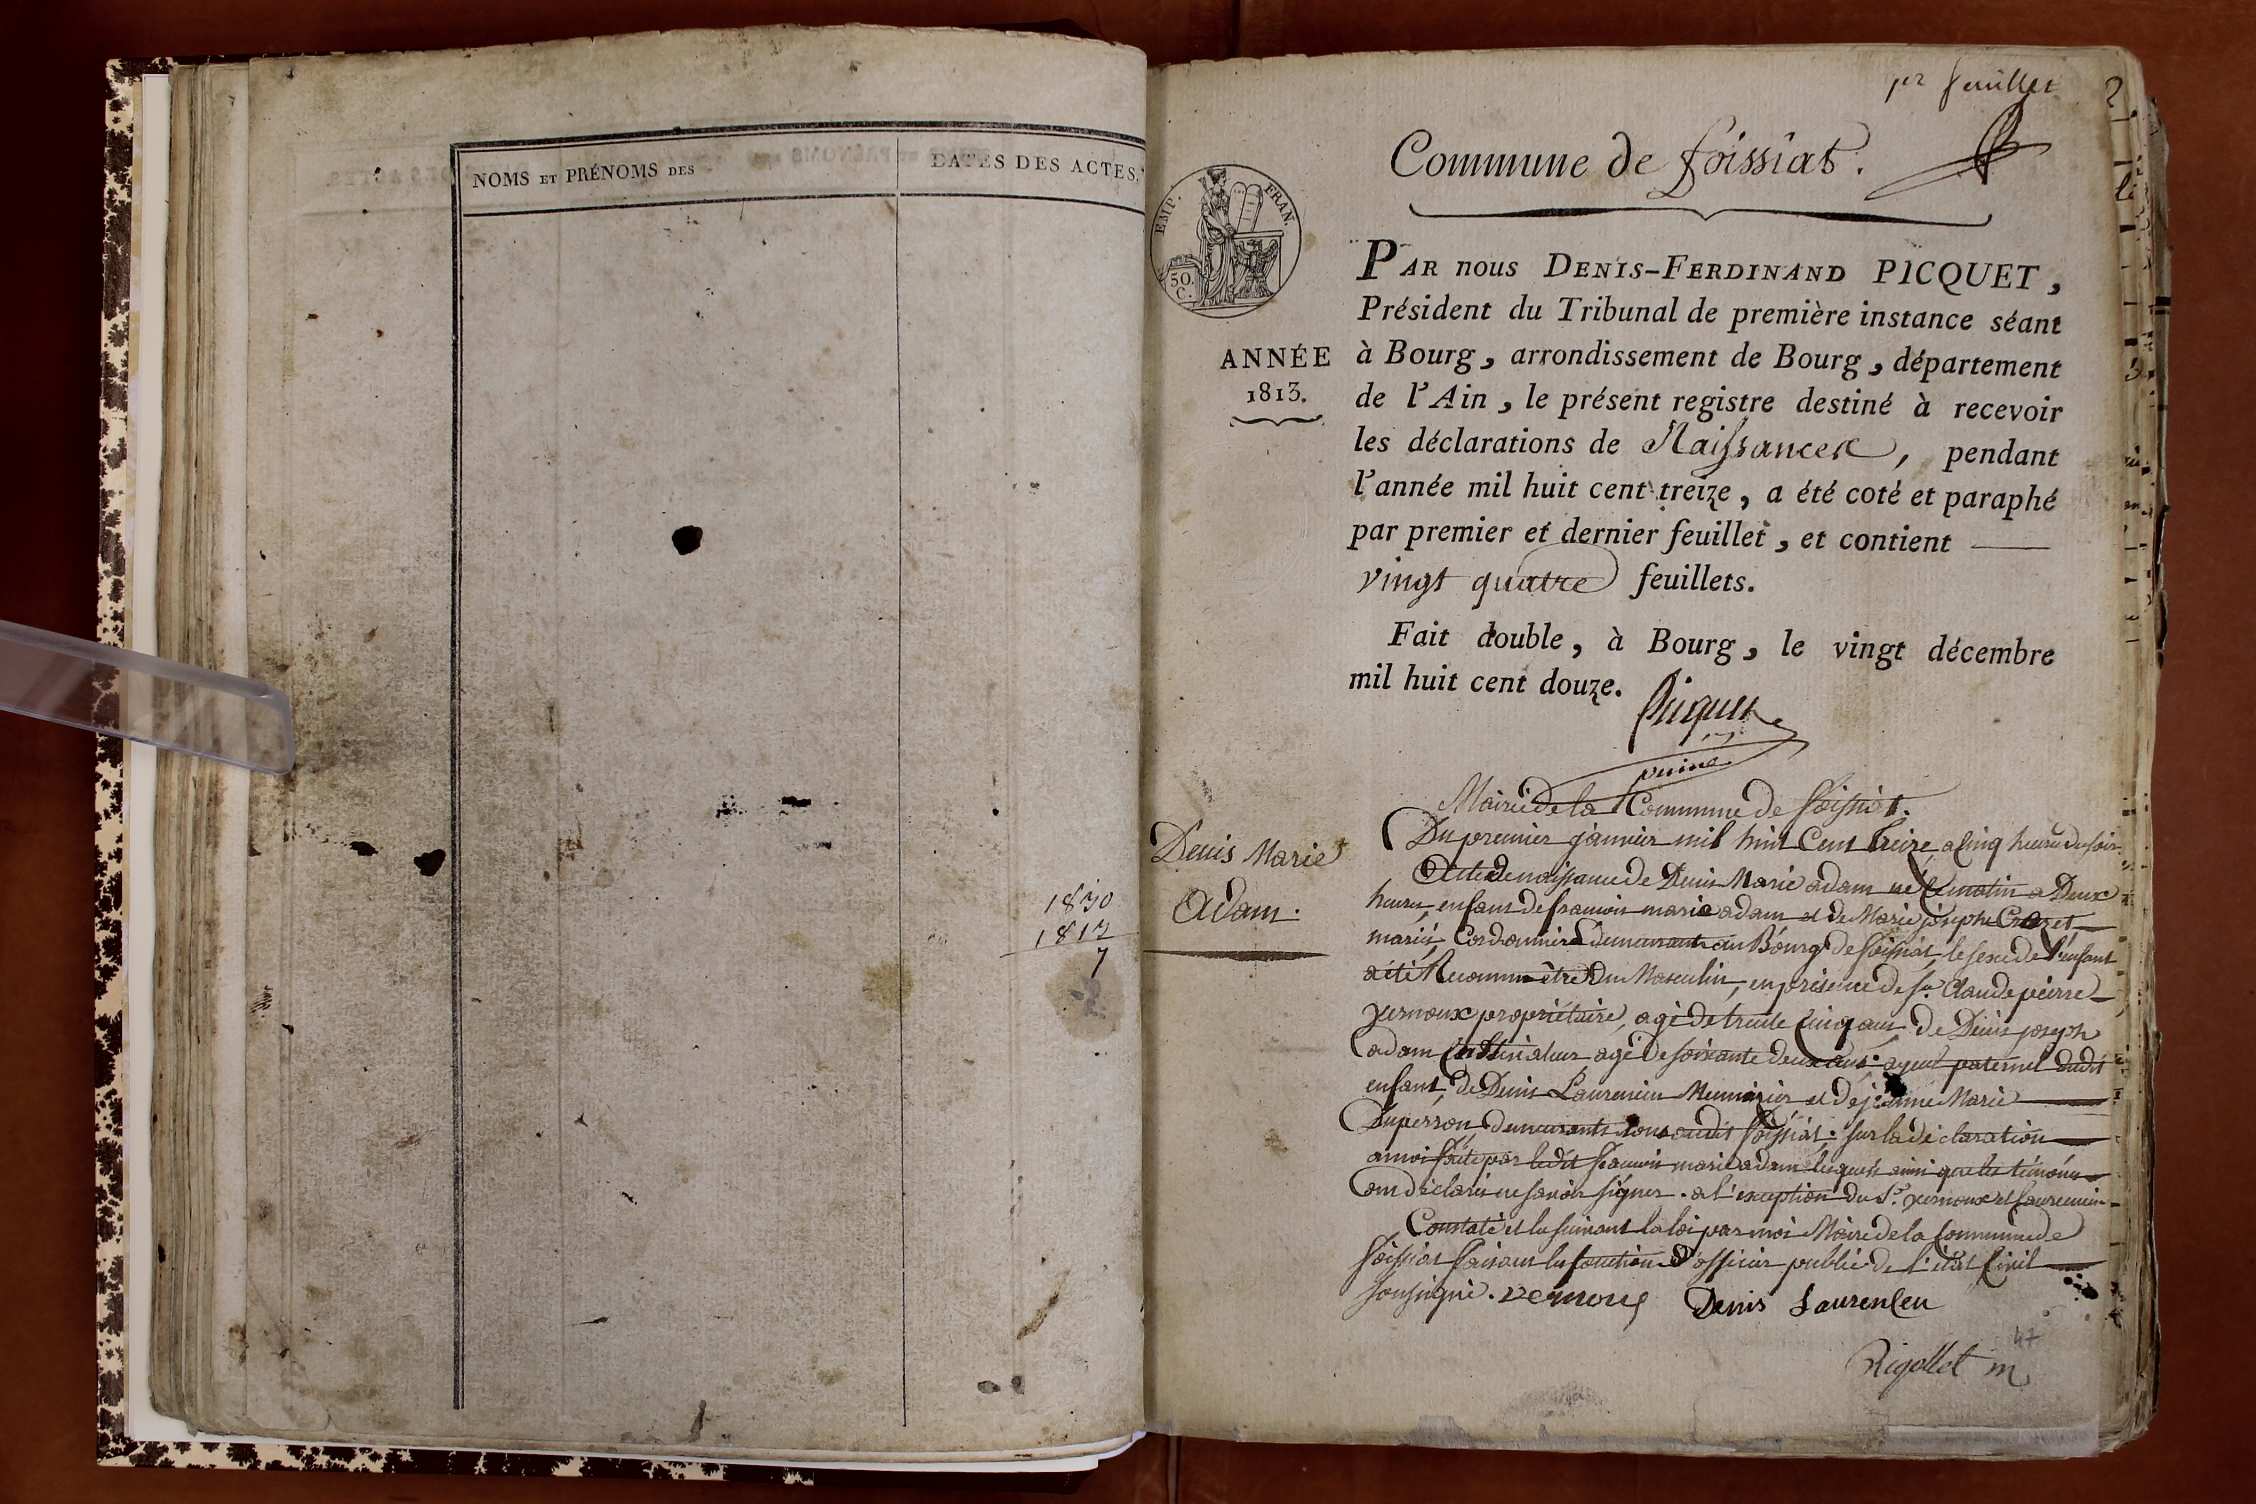 NOMS ET PRÉNOMS DES
DATES DES ACTES.
1830
1813
7
pr feuillet
2
Commune de foissiat.
EMP. FRAN.
50.
C.
ANNÉE
1813.
PAR nous DENIS-FERDINAND PICQUET,
Président du Tribunal de première instance séant
à Bourg, arrondissement de Bourg, département
de l'Ain, le présent registre destiné à recevoir
les déclarations de Naissances, pendant
l'année mil huit cent treize, a été coté et paraphé
par premier et dernier feuillet, et contient
vingt quatre feuillets.
Fait double, à Bourg, le vingt décembre
mil huit cent douze.
Picquet
Denis Marie
Adam.
Mairie de la Commune de foissiat.
Du premier janvier mil huit Cent treize, a Cinq heures du soir.
Acte de naissance de Denis Marie adam né Ce matin a Deux
heures, enfant de françois marie adam et de Marie josephe
mariés, Cordonnier demeurants au Bourg de foissiat, le sexe de l'enfant
a été Reconnu être du Masculin, en présence de sr. Claude peirre
vernoux propriétaire, agé de trente Cinq ans, de Denis joseph
adam Cultivateur agé de soixante deux ans, ayeul paternel dudit
enfant, de Denis Laurencin Menuisier et de jeanne Marie
Duperron demeurants tous audit foissiat. sur la déclaration
a moi faite par ledit françois marie adam lequel ainsi que les témoins
ont déclaré ne savoir signer. a l'exception du sr. vernoux et Laurencin
Constaté et lu suivant la loi par moi Maire de la Commune de
foissiat faisant les fonctions d'officier public de l'état Civil
soussigné. vernoux Denis Laurencen
47
Rigollet m